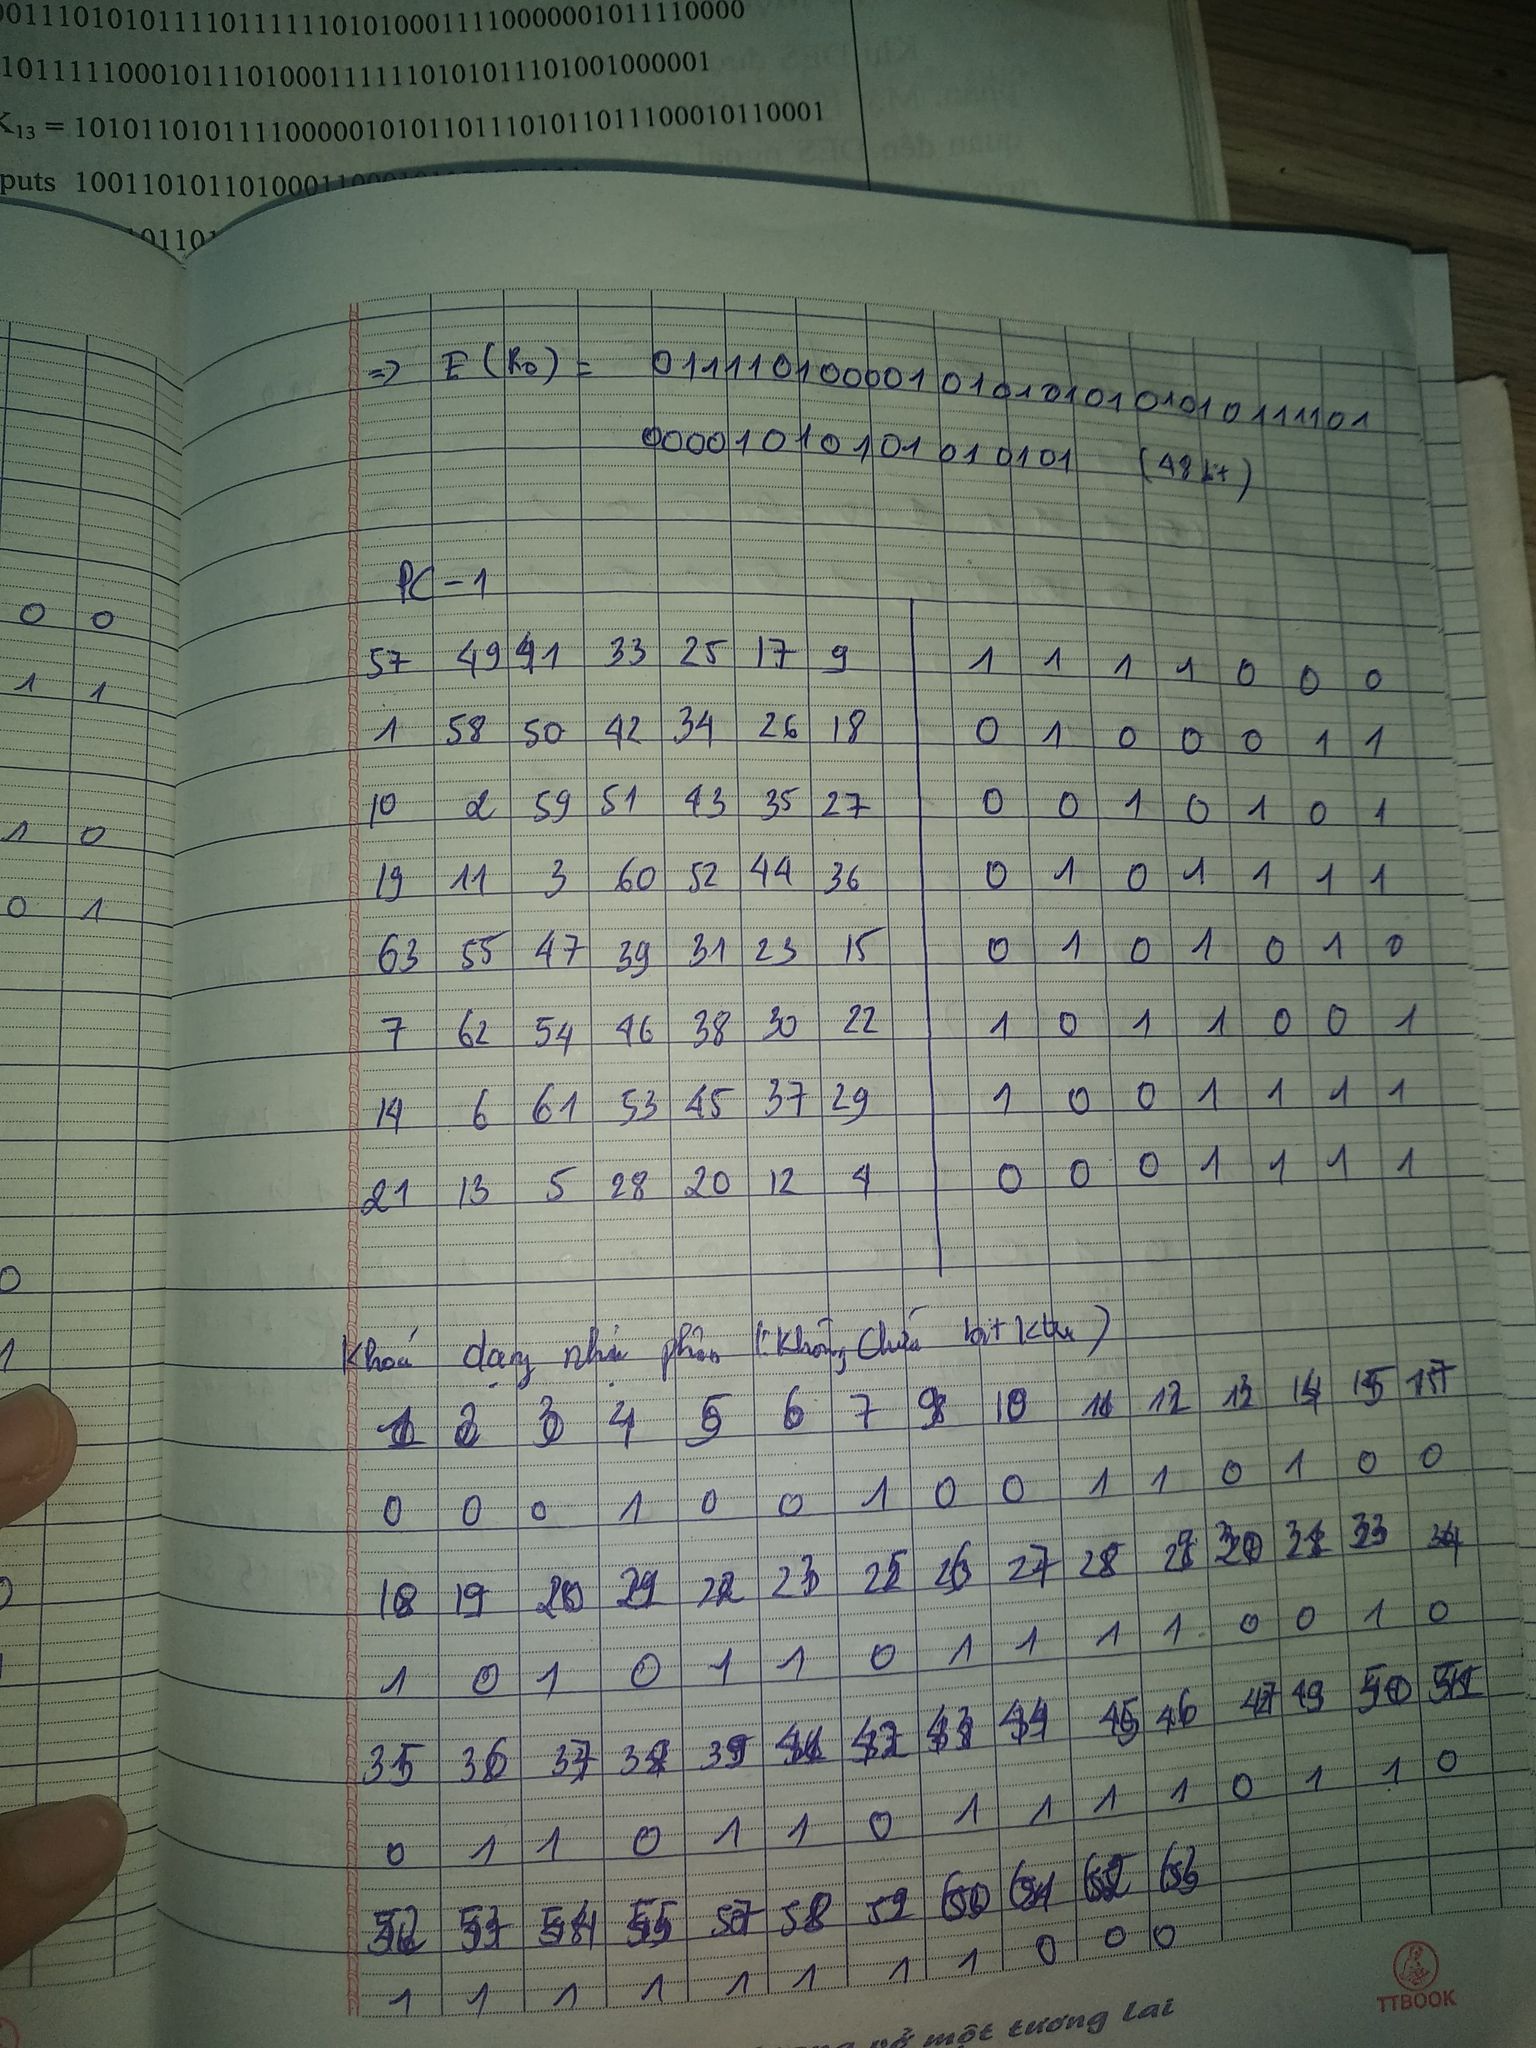 001110101011110111111010100011110000001011110000
101111100010111010001111110101011101001000001
K13 = 101011010111100000101011011101011011100010110001
puts 1001101011010001100010
01101
=> E(R0) = 0111101000010101010101010111101
000010101010101 01 (48 bit)
PC-1
57 49 41 33 25 17 9 1 1 1 1 0 0 0
0 0
1 1
1 58 50 42 34 26 18 0 1 0 0 0 1 1
10 2 59 51 43 35 27 0 0 1 0 1 0 1
1 0
19 11 3 60 52 44 36 0 1 0 1 1 1 1
0 1
63 55 47 39 31 23 15 0 1 0 1 0 1 0
7 62 54 46 38 30 22 1 0 1 1 0 0 1
14 6 61 53 45 37 29 1 0 0 1 1 1 1
21 13 5 28 20 12 4 0 0 0 1 1 1 1
0
Khoá dạng nhị phân (Không chứa bit ktra)
1
1 2 3 4 5 6 7 9 10 11 12 13 14 15 17
0 0 0 1 0 0 1 0 0 1 1 0 1 0 0
18 19 20 21 22 23 25 26 27 28 29 30 31 33 34
1 0 1 0 1 1 0 1 1 1 1 0 0 1 0
35 36 37 38 39 41 42 43 44 45 46 47 49 50 51
0 1 1 0 1 1 0 1 1 1 1 0 1 1 0
52 53 54 55 57 58 59 60 61 62 63
1 1 1 1 1 1 1 1 0 0 0
vở một tương lai
TTBOOK